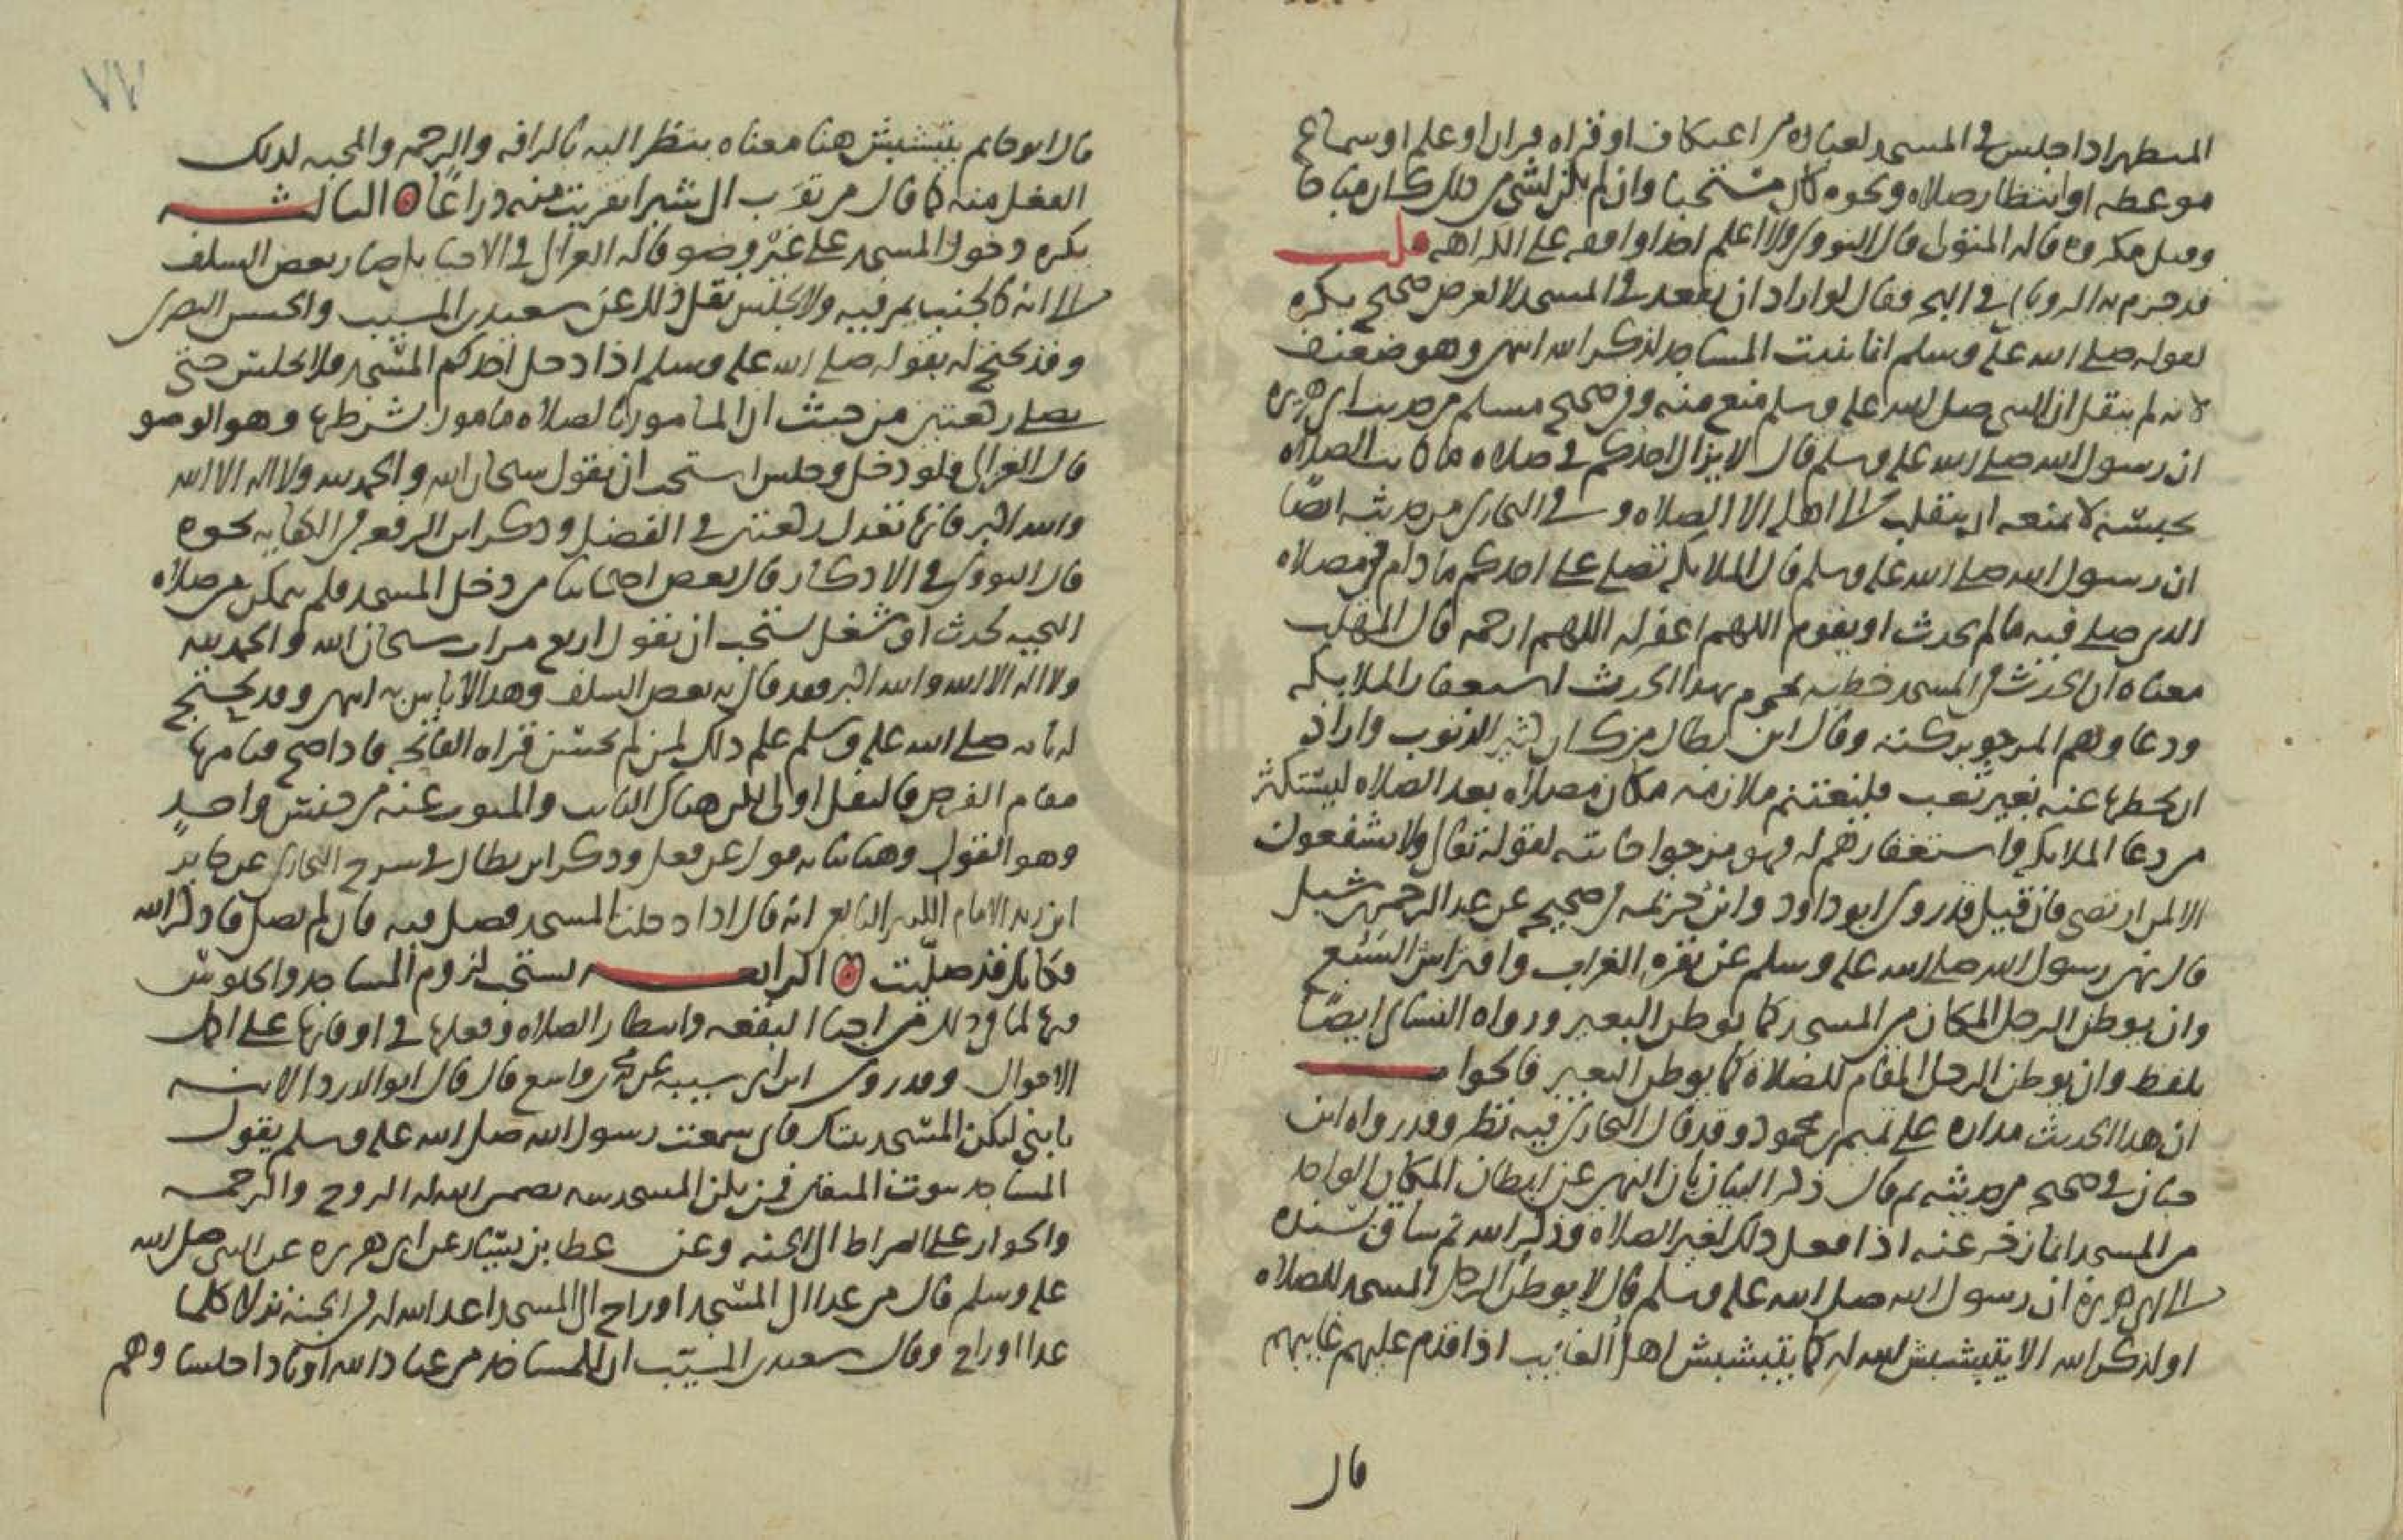 المتطهر اذا جلس في المسجد لعباده من اعتكاف او قراه قران او علم او سماع
موعظه او انتظار صلاه ونحوه كان مستحبا وان لم يكن لشي من ذلك كان مباحا
وقيل مكروه قاله المتولي قال النووي ولا اعلم احدا وافقه على الكراهه قلت
قد جزم به الروياني في البحر فقال لو اراد ان يقعد في المسجد لا لغرض صحيح يكره
لقوله صلى الله عليه وسلم انما بنيت المساجد لذكر الله انتهى وهو ضعيف
لانه لم ينقل ان النبي صلى الله عليه وسلم منع منه وفي صحيح مسلم من حديث ابي هريره
ان رسول الله صلى الله عليه وسلم قال لا يزال احدكم في صلاه ما كانت الصلاه
تحبسه لا يمنعه ان ينقلب الى اهله الا الصلاه وفي البخاري من حديثه ايضًا
ان رسول الله صلى الله عليه وسلم قال الملايكه تصلي على احدكم ما دام في مصلاه
الذي صلى فيه ما لم يحدث او يقوم اللهم اغفر له اللهم ارحمه قال المهلب
معناه ان الحدث في المسجد خطيه يحرم بهذا الحدث استغفار الملايكه
ودعاوهم المرجو بركته وقال ابن بطال من كان كثير الذنوب واراد
ان يحطها عنه بغير تعب فليغتنم ملازمه مكان مصلاه بعد الصلاه ليستكثر
من دعا الملايكه واستغفارهم له فهو مرجوا اجابته لقوله تعالى ولا يشفعون
الا لمن ارتضى فان قيل قد روى ابو داود وابن خزيمه في صحيحه عن عبد الرحمن بن شبل
قال نهى رسول الله صلى الله عليه وسلم عن نقره الغراب وافتراش السَبُع
وان يوطن الرجل المكان من المسجد كما يوطن البعير ورواه النساي ايضًا
بلفظ وان يوطن الرجل المقام للصلاه كما يوطن البعير فالجواب
ان هذا الحديث مداره على تميم بن محمود وقد قال البخاري فيه نظر وقد رواه ابن
حبان في صحيحه من حديثه ثم قال ذكر البيان بان النهي عن ايطان المكان الواحد
من المسجد انما زجر عنه اذا فعل ذلك لغير الصلاه وذكر الله ثم ساق بسنده
الى ابي هريره ان رسول الله صلى الله عليه وسلم قال لا يوطن الرجل المسجد للصلاه
او لذكر الله الا يتبشبش الله له كما يتبشبش اهل الغايب اذا قدم عليهم غايبهم
قال
٧٧
قال ابو حاتم يتبشبش هنا معناه ينظر اليه بالرافه والرحمه والمحبه لذلك
الفعل منه كما قال من تقرب الي شبرا تقربت منه ذراعًا الثالثه
يكره دخول المسجد على غير وضو قاله الغزالي في الاحيا بل صار بعض السلف
الى انه كالجنب يمر فيه ولا يجلس نقل ذلك عن سعيد بن المسيب والحسن البصري
وقد يحتج له بقوله صلى الله عليه وسلم اذا دخل احدكم المسجد فلا يجلس حتى
يصلي ركعتين من حيث ان المامور بالصلاه مامور بشرطها وهو الوضو
قال الغزالي فلو دخل وجلس استحب ان يقول سبحان الله والحمد لله ولا اله الا الله
والله اكبر فانها تعدل ركعتين في الفضل وذكر ابن الرفعه في الكفايه نحوه
قال النووي في الاذكار قال بعض اصحابنا من دخل المسجد فلم يتمكن من صلاه
التحيه لحدث او شغل يستحب ان يقول اربع مرات سبحان الله والحمد لله
ولا اله الا الله والله اكبر فقد قال به بعض السلف وهذا لا باس به انتهى وقد يحتج
له بانه صلى الله عليه وسلم علم ذلك لمن لم يحسن قراه الفاتحه فاذا صح قيامها
مقام الفرض فالنفل اولى لكن هناك النايب والمنوب عنه من جنس واحدٍ
وهو القول وهنا نيابه قول عن فعل وذكر ابن بطال في شرح البخاري عن جابر
ابن زيد الامام الكبير التابعي انه قال اذا دخلت المسجد فصل فيه فان لم تصل فاذكر الله
فكانك قد صليت الرابعه يستحب لزوم المساجد والجلوس
فيها لما في ذلك من احيا البقعه وانتظار الصلاه وفعلها في اوقاتها على اكمل
الاحوال وقد روى ابن ابي شيبه عن محمد بن واسع قال قال ابو الدرداء لابنه
يا بني ليكن المسجد بيتك فاني سمعت رسول الله صلى الله عليه وسلم يقول
المساجد بيوت المتقين فمن يكن المسجد بيته يضمن الله له الروح والرحمه
والجواز على الصراط الى الجنه وعن عطا بن يسار عن ابي هريره عن النبي صلى الله
عليه وسلم قال من غدا الى المسجد او راح الى المسجد اعد الله له في الجنه نزلا كلما
غدا او راح وقال سعيد بن المسيب ان للمساجد من عباد الله اوتادا جلسا وهم